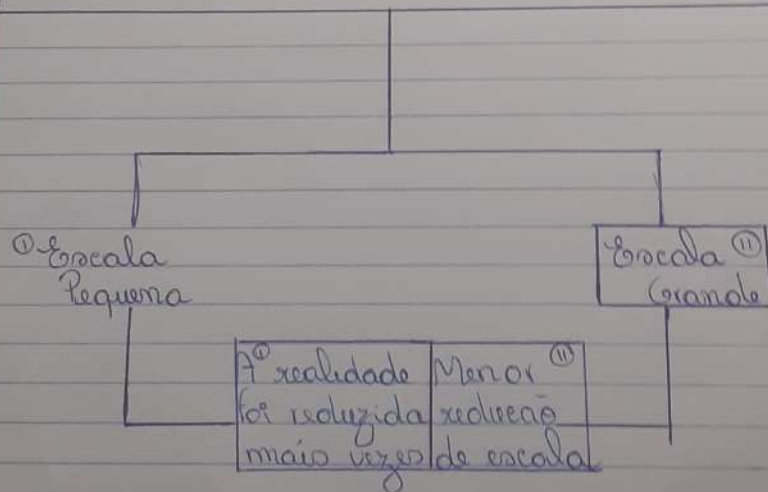 ① Escala
Pequena
Escala ⑪
Grande
A① realidade
foi reduzida
mais vezes
Menor ⑪
redução
de escala